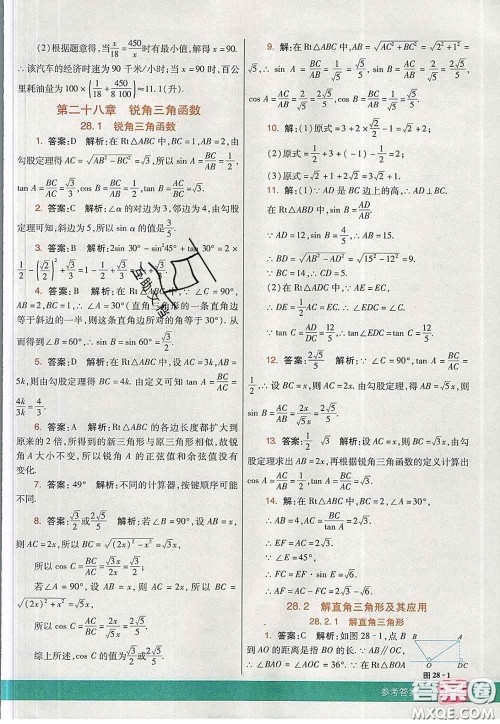 (2)根据题意得，当 x/18 = 450/x 时有最小值，解得 x=90.
∴该汽车的经济时速为 90 千米/小时，当 x=90 时，百公
里耗油量为100×(1/18+450/8 100)≈11.1(升).
第二十八章 锐角三角函数
28.1 锐角三角函数
1. 答案：D 解析：在 Rt△ABC 中，BC=1，AB=2，由
勾股定理得 AC=√(AB²−BC²)=√3，所以 sin A=BC/AB=1/2，
tan A=BC/AC=√3/3，cos B=BC/AB=1/2，tan B=AC/BC=√3.
2. 答案：C 解析：∠α 的对边为 3，邻边为 4，由勾股
定理可知，斜边为 5，所以 sin α 的值是 3/5.
3. 答案：B 解析：2sin 30°−sin²45°+ 30°=2×
1/2−(√2/2)²+√3=1/2+√3.
4. 答案：B 解析：在 Rt△ABC 中，∵∠C=90°，AB=
2BC，∴∠A=30°(直角三角形的一条直角边
等于斜边的一半，则这条直角边所对的角等于 30°)，从
而得到∠B=60°.
5. 答案：D 解析：在 Rt△ABC 中，设 AC=3k，AB=5k，
则由勾股定理得 BC=4k. 由正切的定义可知 tan A=BC/AC=
4k/3k=4/3.
6. 答案：A 解析：Rt△ABC 的各边长度都扩大到
原来的 2 倍，所得到的新三角形与原三角形相似，故锐
角 A 大小不变，所以锐角 A 的正弦值和余弦值没有
变化.
7. 答案：49° 解析：不同的计算器，按键顺序可能
不同.
8. 答案：√3/2或2√5/5 解析：若∠B=90°，设 AB=x，则
AC=2x，所以 BC=√((2x)²−x²)=√3x，所以 cos C=
BC/AC=√3x/2x=√3/2；若∠A=90°，设 AB=x，则 AC=2x，所以
BC=√((2x)²+x²)=√5x，所以 cos C=AC/BC=2x/√5x=2√5/5.
综上所述，cos C 的值为√3/2或2√5/5.
9. 解：在 Rt△ABC 中，AB=√(AC²+BC²)=√(2²+1²)=
√5，∴ sin A=BC/AB=1/√5=√5/5，sin B=AC/AB=2/√5=2√5/5，
cos A=AC/AB=2/√5=2√5/5，cos B=BC/AB=1/√5=√5/5.
10. 解：(1)原式=2×1/2+1/2=3/2.
(2)原式=
11. 解：(1)∵AD 是 BC 边上的高，∴AD⊥BC.
在 Rt△ABD 中，∵ sin B=AD/AB=4/5，
∵AD=12，∴AB=15，
∴BD=√(AB²−AD²)=√(15²−12²)=9.
∵BC=14，∴DC=5.
(2)在 Rt△ADC 中，∵AE=EC，
∴DE=1/2AC=EC，∴∠EDC=∠C.
∵ tan C=AD/DC=12/5，∴ tan∠EDC=tan C=12/5.
12. 答案：2√5/5 解析：∵∠C=90°，tan A=BC/AC=
，∴设 BC=x，则 AC=2x. 由勾股定理可得 AB=√5x，∴
sin B=AC/AB=2x/√5x=2√5/5.
13. 答案：1/2 √3 解析：在 Rt△ABC 中，先根据勾
股定理求出 AB=2√5，再根据锐角三角函数的定义计算出
14. 解：在 Rt△ABC 中，BC=2，∠A=30°，
∴AB=4，AC=
∵∠E=45°，∠EFC=90°，
∴EF=AC=2√3.
∴AF=AC−FC=
28.2 解直角三角形及其应用
28.2.1 解直角三角形
1. 答案：C 解析：如图 28-1，点 B
到 AO 的距离是指 BO 的长，∵AB∥
DC，∴∠BAO=∠AOC=36°. ∵在
图 28-1
参考答案
答案圈
MXQE.COM